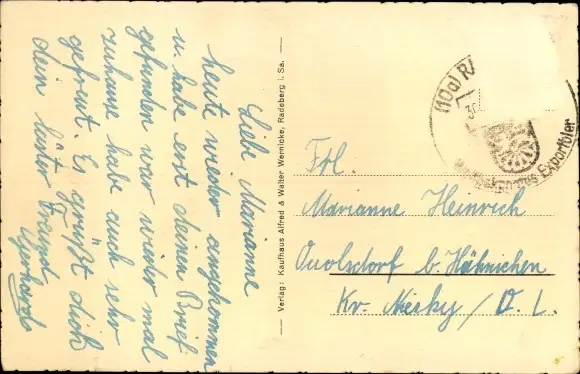 Liebe Marianne
heute wieder angekommen
u. habe erst deinen Brief
gefunden war wieder mal
zuhause habe auch sehr
gefreut. Es grüßt dich
dein
Gerhard
Verlag: Kaufhaus Alfred & Walter Wernicke, Radeberg i. Sa.
(10a) RA
Exportbier
Frl.
Marianne Heinrich
Quolsdorf b. Hähnichen
Kr. Niesky / O. L.